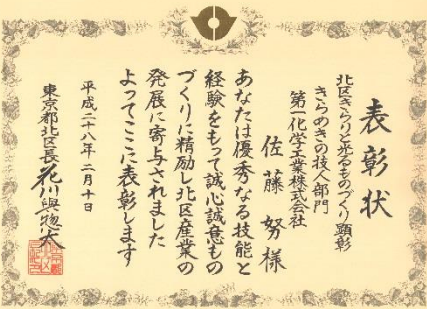 表彰状
北区きらりと光るものづくり顕彰
きらめきの技人部門
第一化学工業株式会社
佐藤努様
あなたは優秀なる技能と
経験をもって誠心誠意もの
づくりに精励し北区産業の
発展に寄与されました
よってここに表彰します
平成二十八年二月十日
東京都北区長花川與惣太